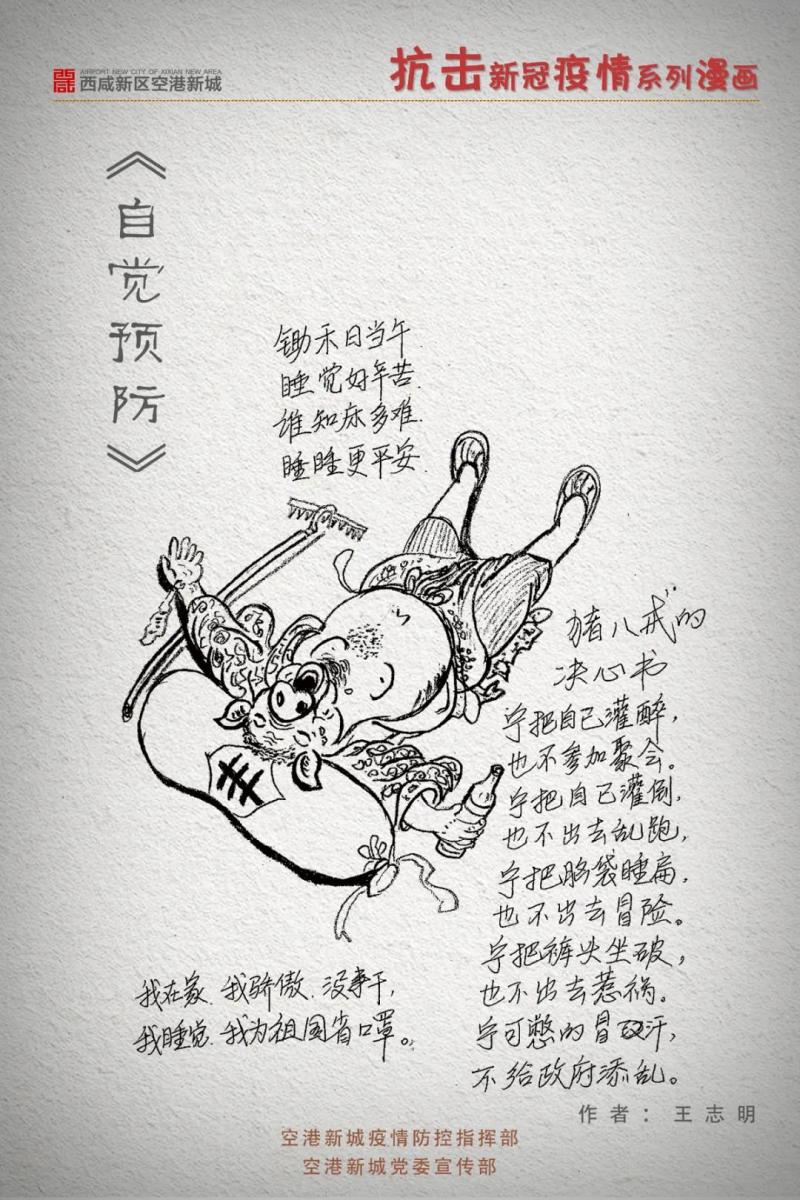 西咸
AIRPORT NEW CITY OF XIXIAN NEW AREA
西咸新区空港新城
抗击新冠疫情系列漫画
《自觉预防》
锄禾日当午.
睡觉好辛苦.
谁知床多难.
睡睡更平安.
"猪八戒"的
决心书
宁把自己灌醉，
也不参加聚会。
宁把自己灌倒，
也不出去乱跑，
宁把脑袋睡扁，
也不出去冒险。
宁把裤头坐破，
也不出去惹祸。
宁可憋的冒汗，
不给政府添乱。
我在家.我骄傲.没事干，
我睡觉.我为祖国省口罩。
作者：王志明
空港新城疫情防控指挥部
空港新城党委宣传部